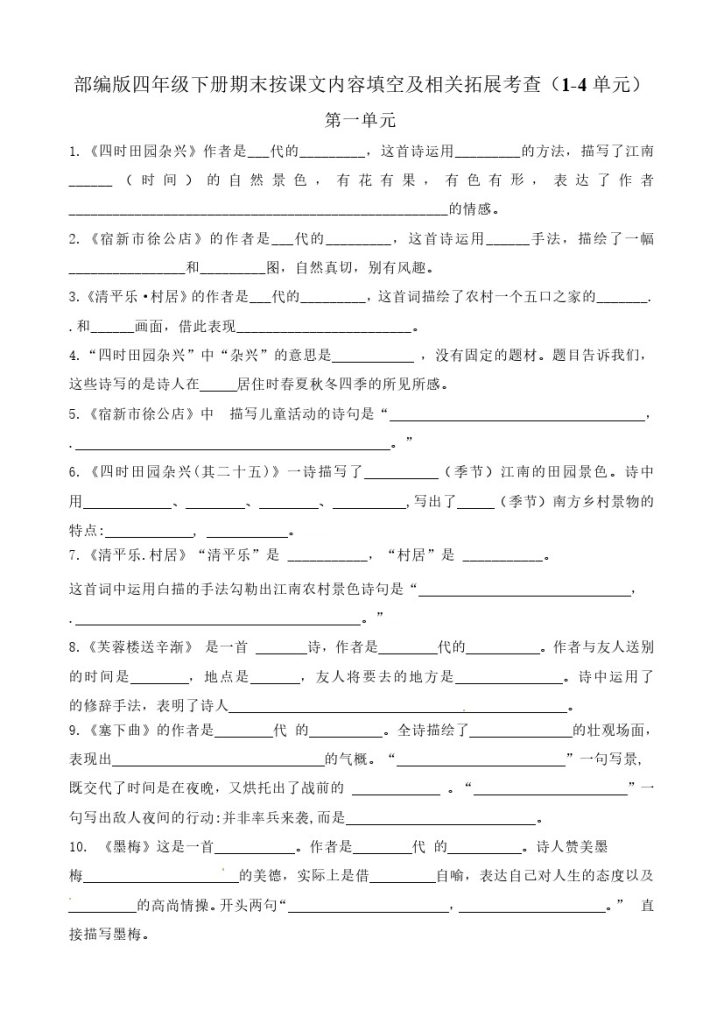 部编版四年级下册期末按课文内容填空及相关拓展考查（1-4 单元）
第一单元
1.《四时田园杂兴》作者是___代的_________，这首诗运用_________的方法，描写了江南
______（时间）的自然景色，有花有果，有色有形，表达了作者
____________________________________________________的情感。
2.《宿新市徐公店》的作者是___代的_________，这首诗运用______手法，描绘了一幅
________________和_________图，自然真切，别有风趣。
3.《清平乐·村居》的作者是___代的_________，这首词描绘了农村一个五口之家的_______.
.和______画面，借此表现________________________。
4.“四时田园杂兴”中“杂兴”的意思是___________ ，没有固定的题材。题目告诉我们，
这些诗写的是诗人在_____居住时春夏秋冬四季的所见所感。
5.《宿新市徐公店》中 描写儿童活动的诗句是“___________________________________，
.___________________________________________。”
6.《四时田园杂兴(其二十五)》一诗描写了__________（季节）江南的田园景色。诗中
用____________、________、________、__________,写出了_____（季节）南方乡村景物的
特点:____________，___________。
7.《清平乐.村居》“清平乐”是 ___________，“村居”是 ___________。
这首词中运用白描的手法勾勒出江南农村景色诗句是“_____________________________，
._______________________________________。”
8.《芙蓉楼送辛渐》 是一首 _______诗，作者是________代的__________。作者与友人送别
的时间是________，地点是_______，友人将要去的地方是_______________。诗中运用了
的修辞手法，表明了诗人______________________________________________。
9.《塞下曲》的作者是________代 的__________。全诗描绘了______________的壮观场面，
表现出_____________________________的气概。“_______________________”一句写景，
既交代了时间是在夜晚，又烘托出了战前的 ____________ 。“_____________________”一
句写出敌人夜间的行动:并非率兵来袭,而是__________________________。
10. 《墨梅》这是一首___________。作者是________代 的__________。诗人赞美墨
梅_____________________的美德，实际上是借_________自喻，表达自己对人生的态度以及
_________的高尚情操。开头两句“______________________，____________________。” 直
接描写墨梅。